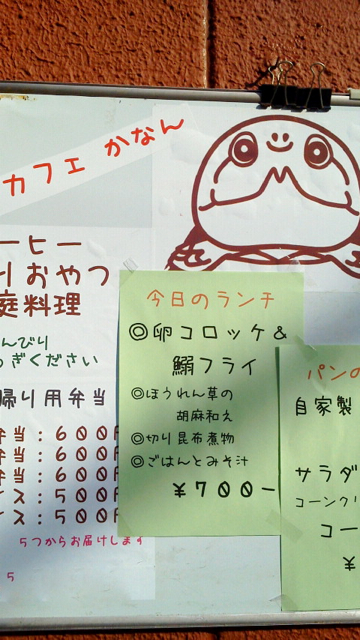 カフェ かなん
ーヒー
りおやつ
庭料理
んびり
ろぎください
帰り用弁当
弁当：６００円
弁当：６００
弁当：６００
イス：５００
イス：５００
５つからお届けします
５
今日のランチ
◎卵コロッケ&
鰯フライ
◎ほうれん草の
胡麻和え
◎切り昆布煮物
◎ごはんとみそ汁
￥７００－
パンの
自家製
サラダ
コーンクリ
コー
￥